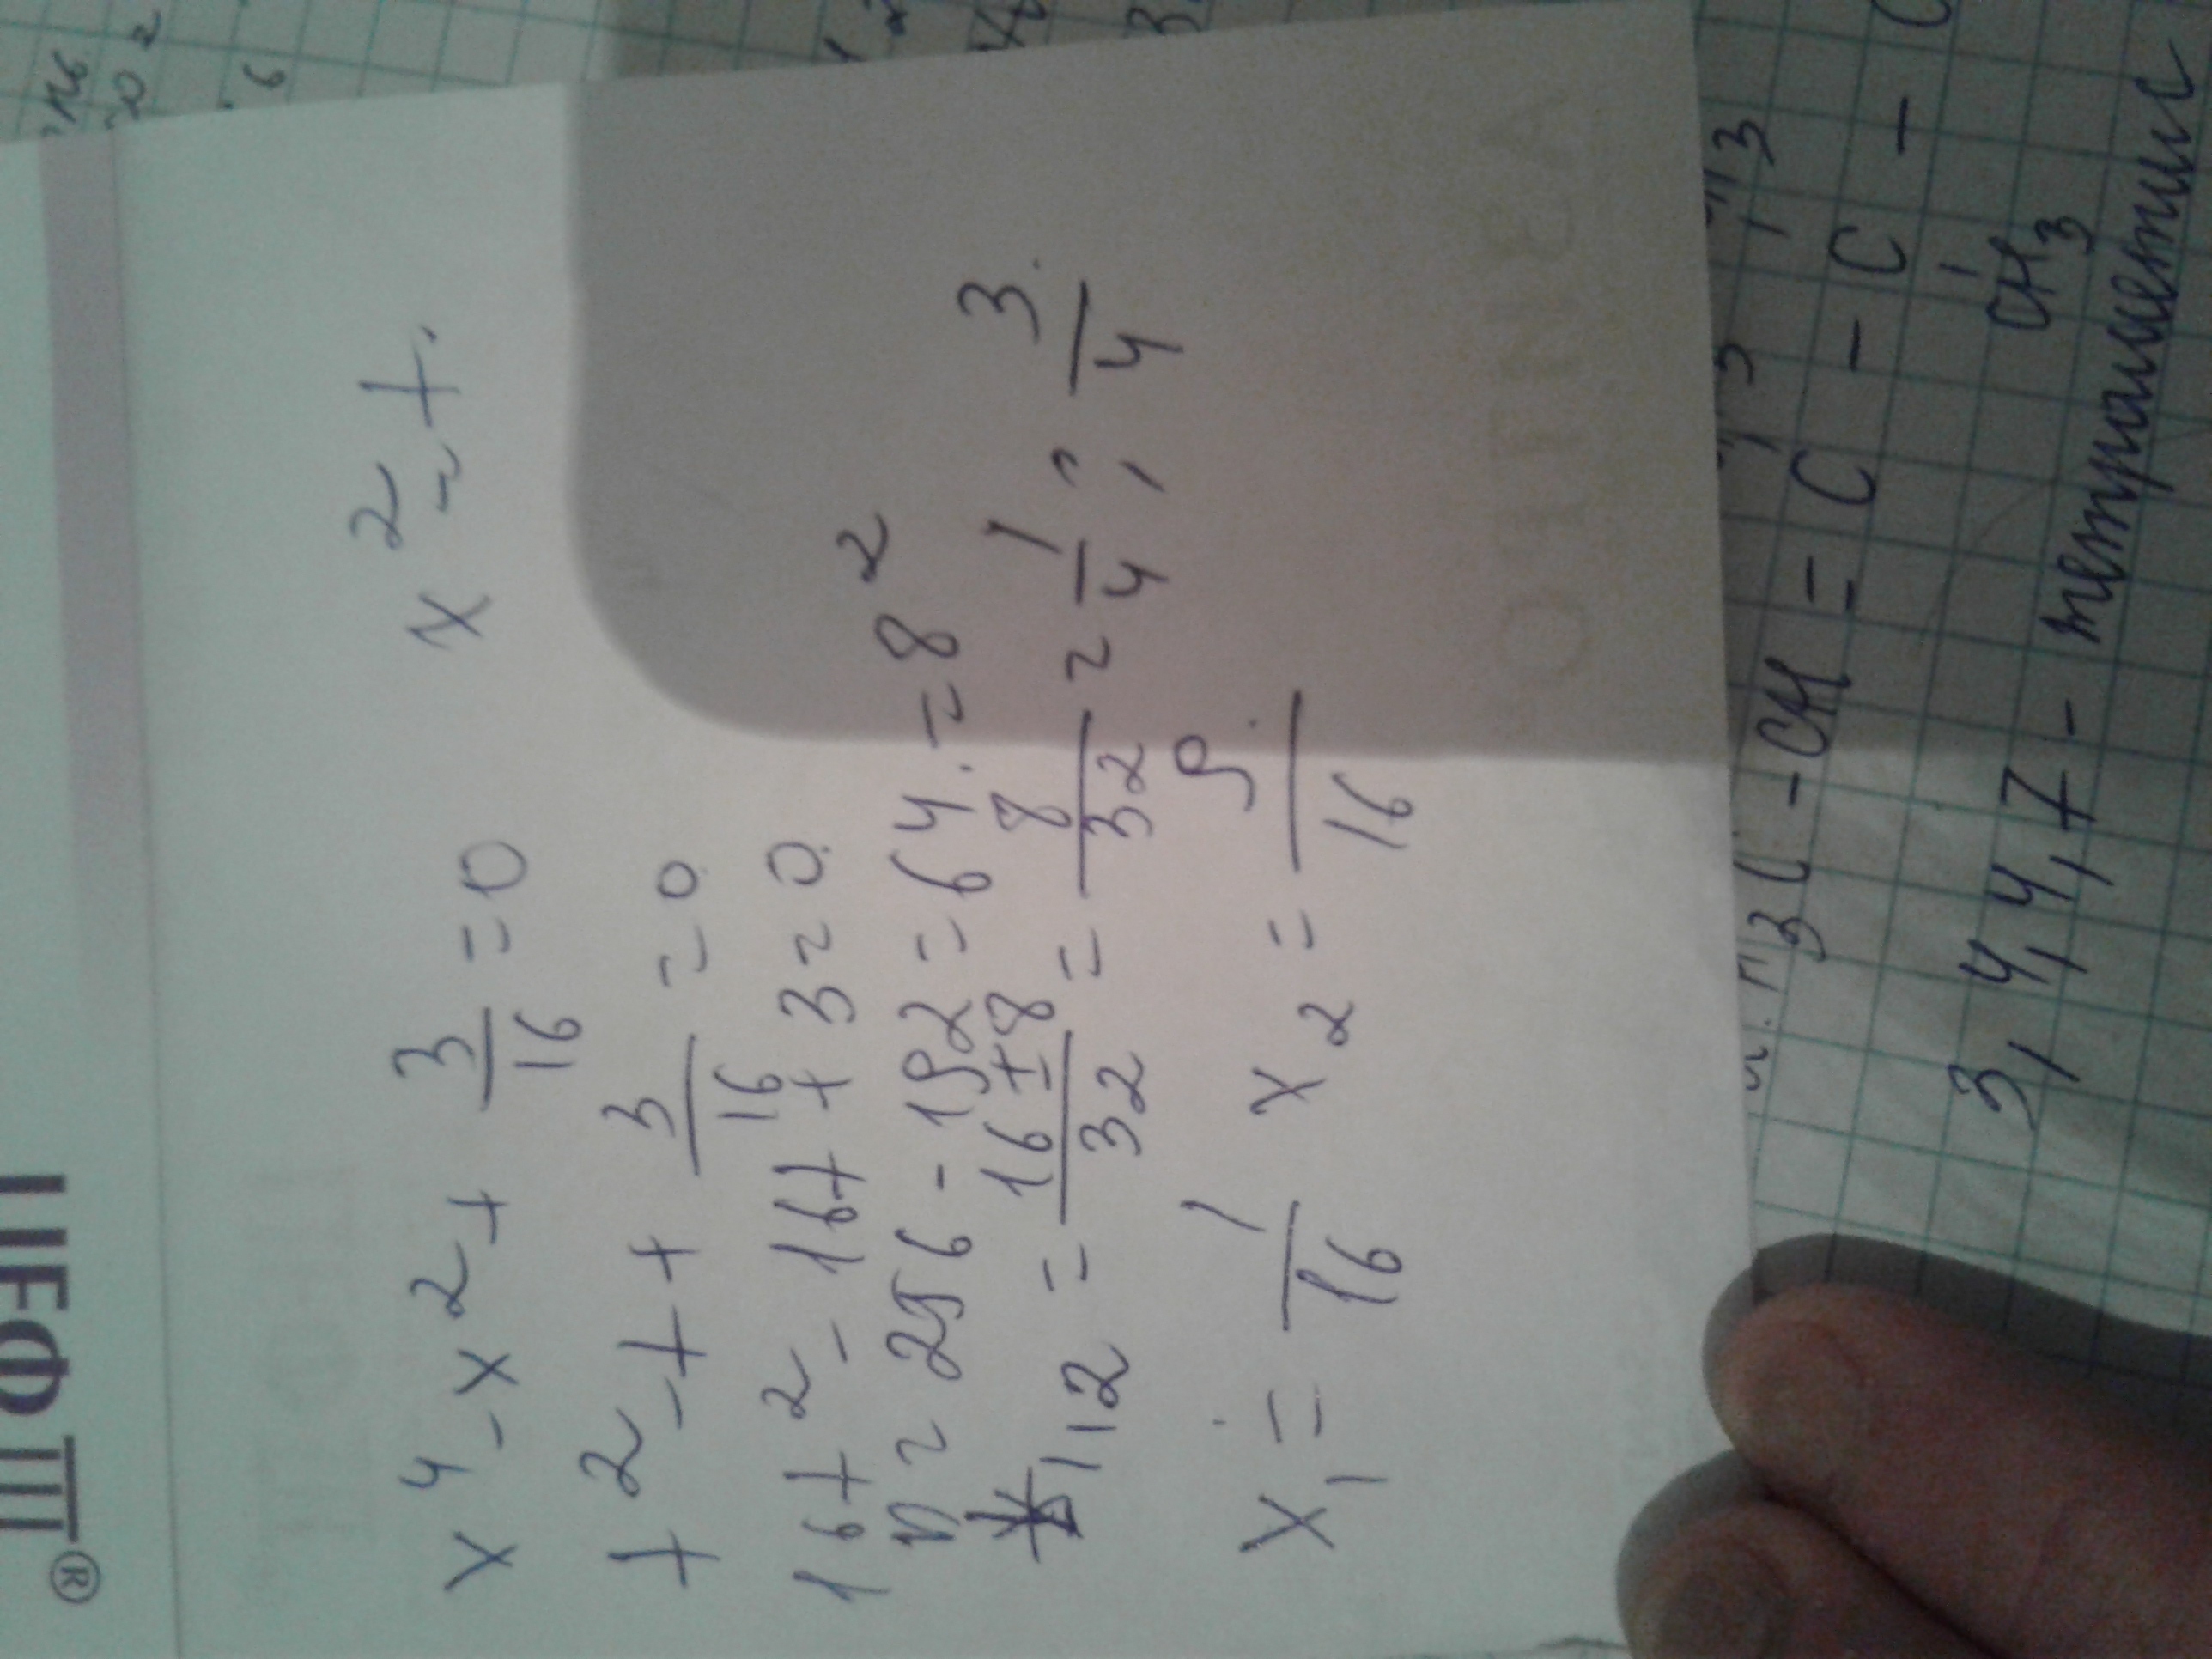 x⁴ - x² + 3/16 = 0 x² = t.
t² - t + 3/16 = 0
16t² - 16t + 3 = 0.
D = 256 - 192 = 64. = 8²
t₁,₂ = (16 ± 8)/32 = 8/32 = 1/4 ; 3/4
x₁ = 1/16 x₂ = 9/16
®
- CH = C - C -
CH₃
3, 4, 4, 7 - тетраметил